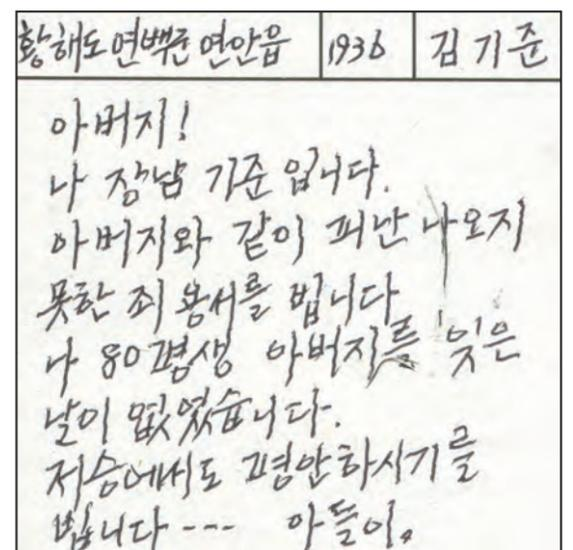 황해도 연백군 연안읍 1936 김기준
아버지!
나 장남 기준 입니다.
아버지와 같이 피난 나오지
못한 죄 용서를 빕니다
나 80평생 아버지를 잊은
날이 없었습니다.
저승에서도 평안하시기를
빕니다--- 아들이.